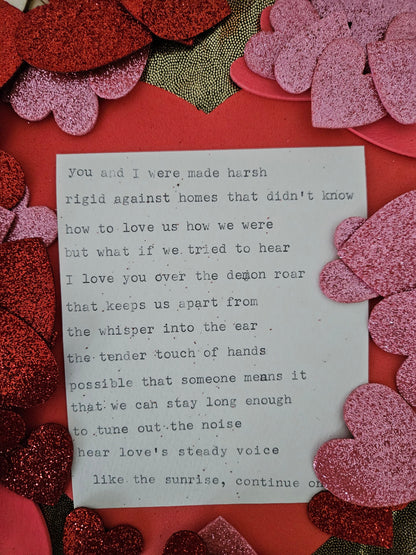 you and I were made harsh
rigid against homes that didn't know
how to love us how we were
but what if we tried to hear
I love you over the demon roar
that keeps us apart from
the whisper into the ear
the tender touch of hands
possible that someone means it
that we can stay long enough
to tune out the noise
hear love's steady voice
like the sunrise, continue on